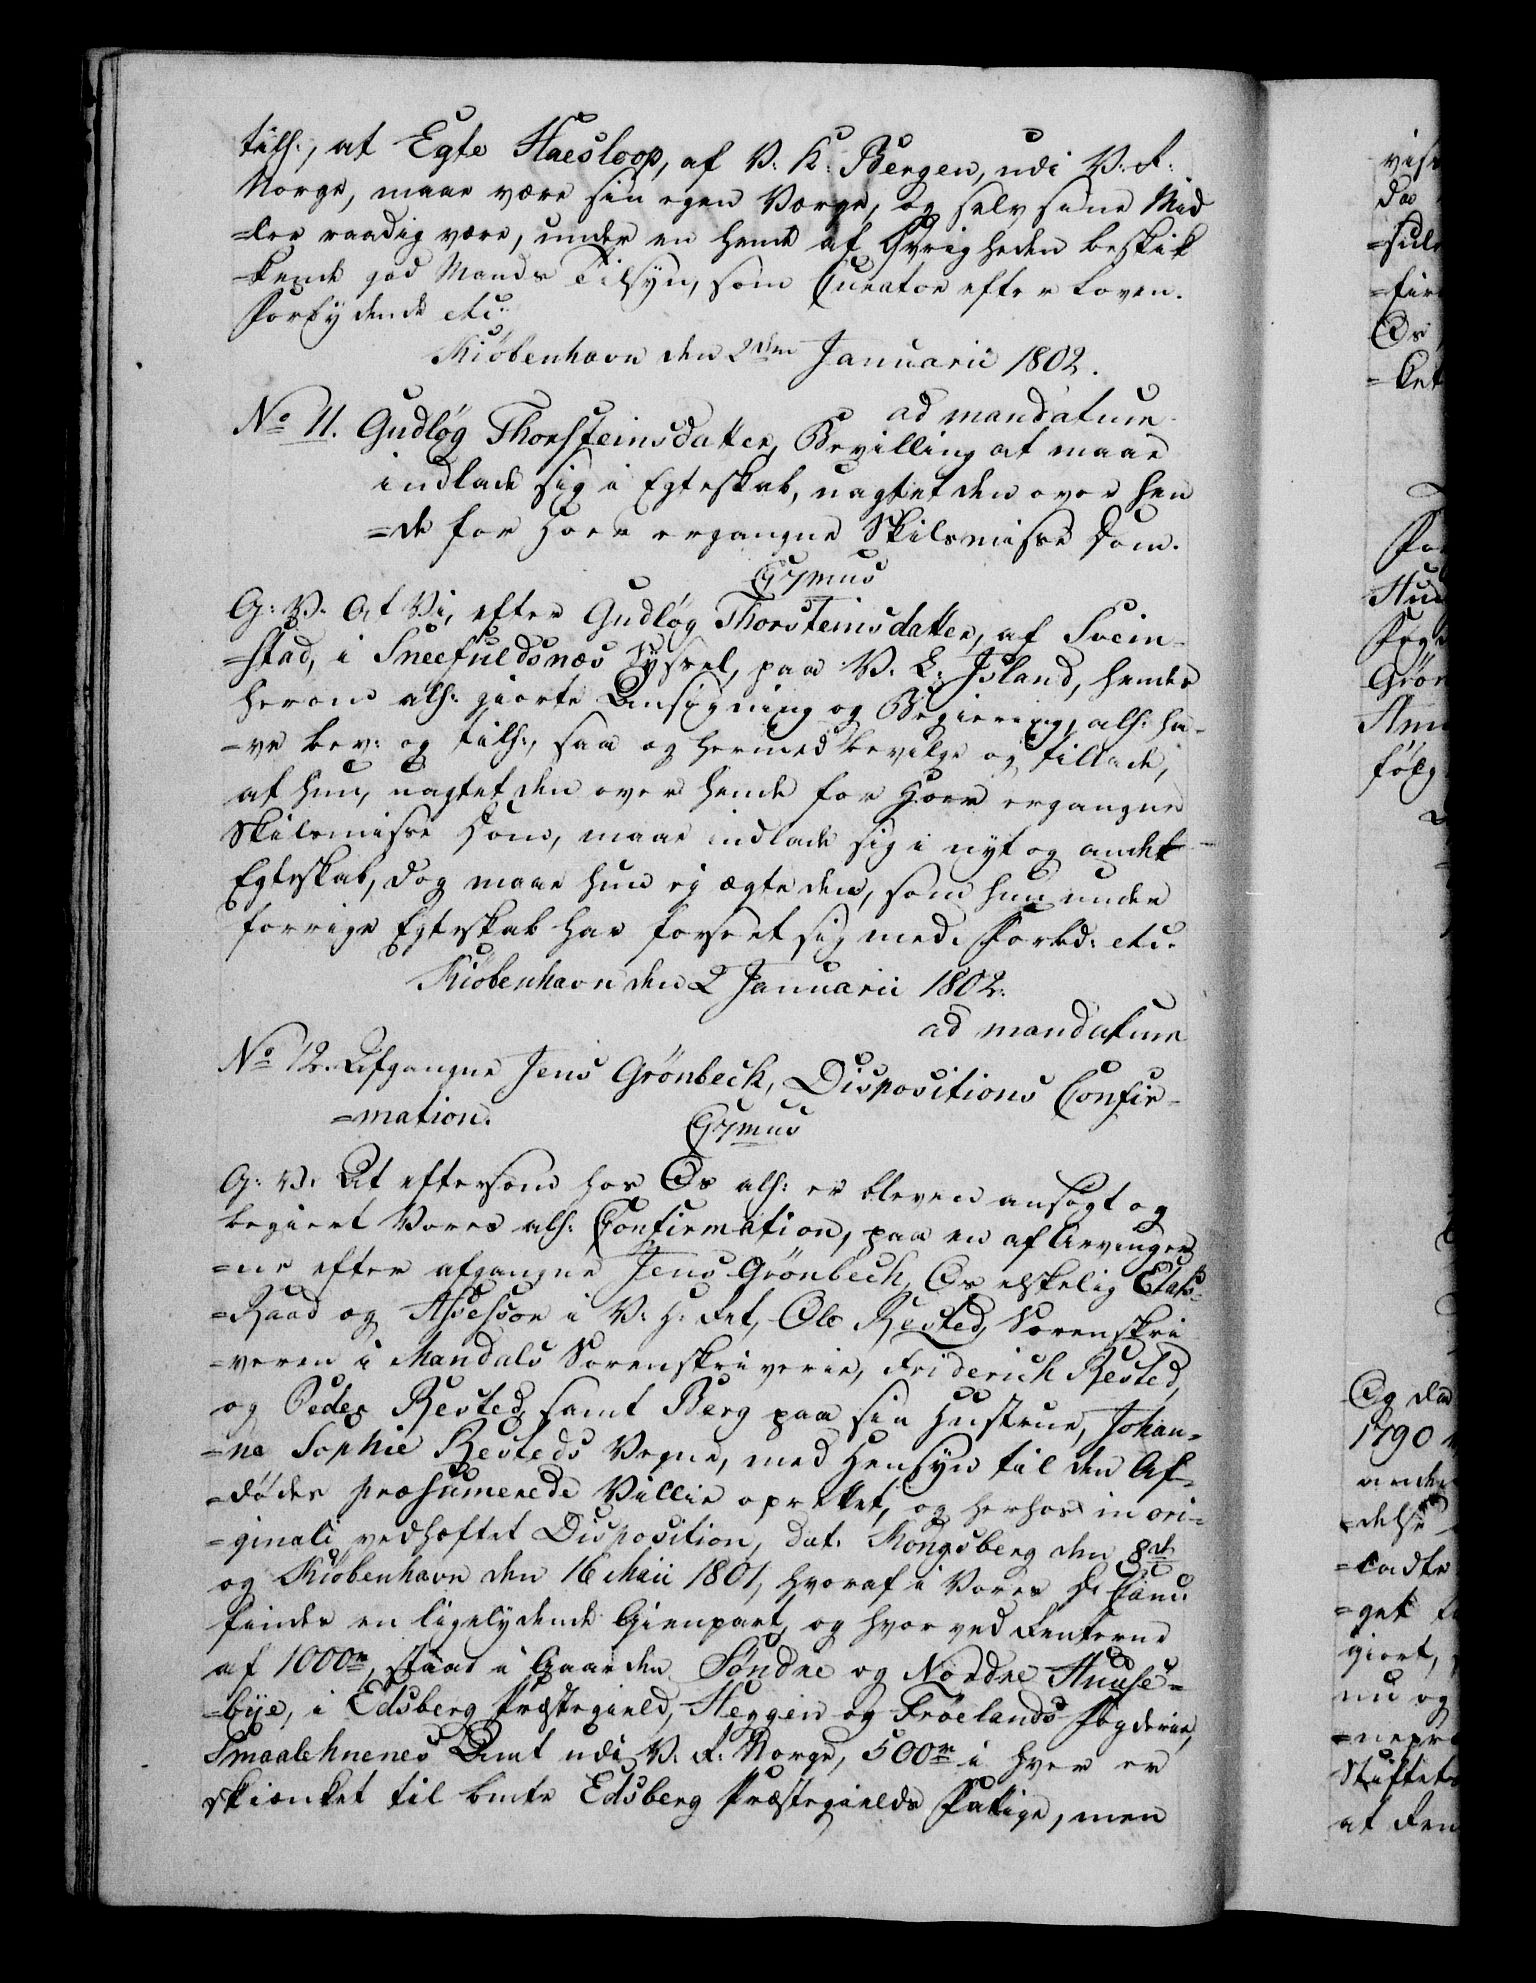 till:, at Egte Haesloop, af V: K: Bergen, udi V: R:
Norge, maae være sin egen Værge, og selv sine Mid
=ler raadig være, under en hende af Øvrigheden beskik
=kende god Mands Tilsyn, som Curator efter Loven.
Forbydende etc:
Kiöbenhavn den 2den Januarii 1802.
ad mandatum
No 11. Gudløg Thorsteinsdatter, Bevilling at maae
indlade sig i Egteskab, uagtet den over hen
=de for Hoer ergangne Skilsmisse Dom.
C 7mus
G: V. At Vi, efter Gudløg Thorsteinsdatter, af Svein-
=stad, i Sneefieldsnæs Syssel, paa V. L: Island, hendes
herom all: giorte Ansøgning og Begiering, all: ha-
=ve bev: og till:, saa og hermed bevilge og tillade,
at hun, uagtet den over hende for Hoer ergangne
Skilsmisse Dom, maae indlade sig i nyt og andet
Egteskab, dog maae hun ej ægte den, som hun under
forrige Egteskab har forseet sig med. Forbd: etc.
Kiöbenhavn den 2 Januarii 1802.
ad mandatum
No 12. Afgangne Jens Grönbeck, Dispositions Confir-
=mation.
C 7mus
G: V. At eftersom hos Os all: er bleven ansögt og
begiert Vores all: Confirmation, paa en af Arvinger
=ne efter afgangne Jens Grönbech, Os elskelig Etats-
=Raad og Assessor i V: H: Ret, Ole Bested, Sorenskri
=veren i Mandals Sorenskriverie, Friderich Bested,
og Peder Bested, samt Berg paa sin Hustrue, Johan-
=ne Sophie Besteds Vegne, med Hensyn til den Af-
=dödes præsumerede Villie oprettet, og herhos in ori-
=ginali vedhæftet Disposition, dat. Kongsberg den 8de
og Kiöbenhavn den 16 Maii 1801, hvoraf i Vores D. Canc:
findes en ligelydende Gienpart, og hvorved Renterne
af 1000rd, staae i Gaarden Söndre og Nordre Huuse-
=bye, i Edsberg Præstegield, Heggen og Fröelands Fogderie,
Smaalehnenes Amt udi V. R. Norge, 500rd i hver er
skienket til bmte Edsberg Præstegields Fattige, men